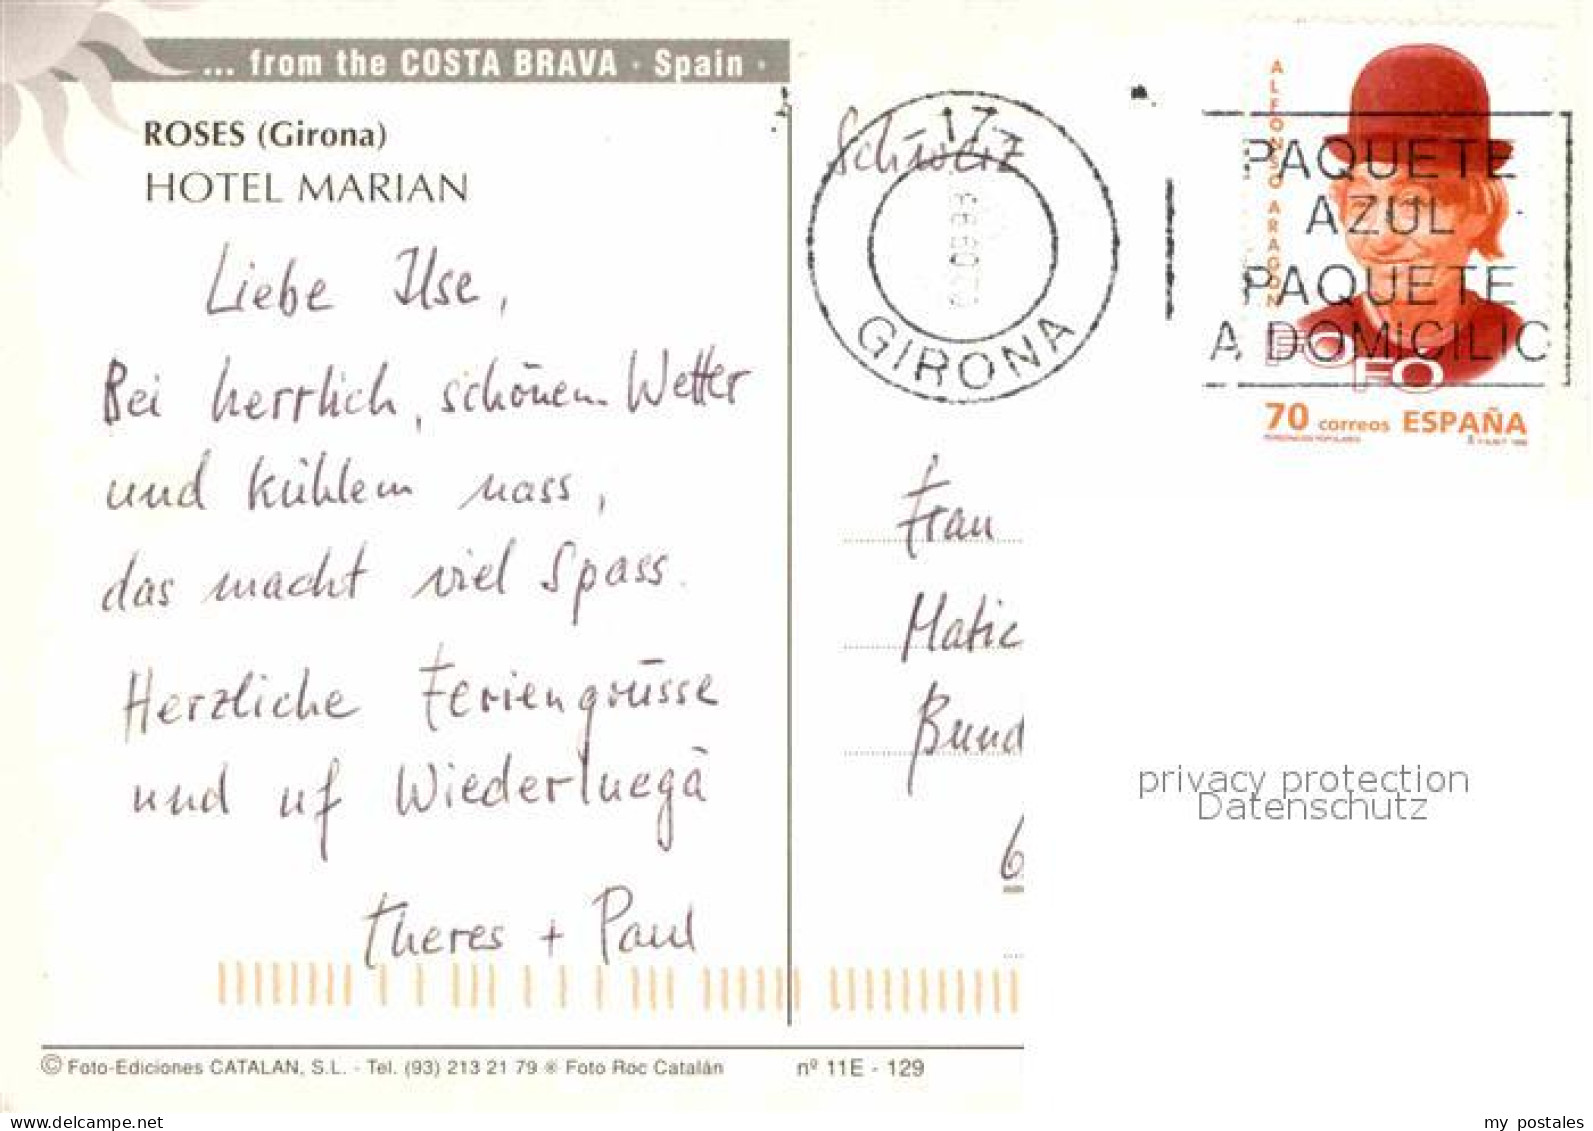 ... from the COSTA BRAVA · Spain ·
ROSES (Girona)
HOTEL MARIAN
Liebe Ilse,
Bei herrlich, schönem Wetter
und kühlem nass,
das macht viel Spass.
Herzliche Feriengrüsse
und uf Wiederluegä
Theres + Paul
Schweiz
17
GIRONA
PAQUETE
AZUL
PAQUETE
A DOMICILIO
ALFONSO ARAGON
FOFO
70 correos ESPAÑA
PERSONAJES POPULARES
Frau
Matic
Bund
6
privacy protection
Datenschutz
© Foto-Ediciones CATALAN, S.L. - Tel. (93) 213 21 79 ※ Foto Roc Catalán
nº 11E - 129
www.delcampe.net
my_postales